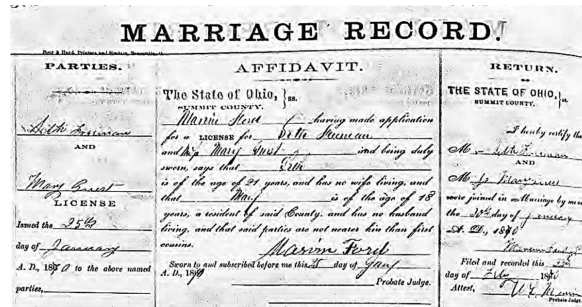 MARRIAGE RECORD.
PARTIES.
Seth Freeman
AND
Mary
LICENSE
Issued the 25th
day of January
A. D., 1870 to the above named
parties.
AFFIDAVIT.
The State of Ohio, } ss.
SUMMIT COUNTY.
having made application
for a LICENSE for Seth Freeman
and Miss Mary and being duly
sworn, says that Seth
is of the age of 21 years, and has no wife living, and
that Mary is of the age of 18
years, a resident of said County, and has no husband
living, and that said parties are not nearer kin than first
cousins.
Marvin Ford
Sworn to and subscribed before me this 25 day of Jany
A. D., 1870
Probate Judge.
RETURN.
THE STATE OF OHIO, } ss.
SUMMIT COUNTY.
I hereby certify tha
M Seth Freeman
AND
M
were joined in Marriage by me
the day of January
A. D., 1870
Filed and recorded this
day of Feb 1870
Attest,
Probate Judge